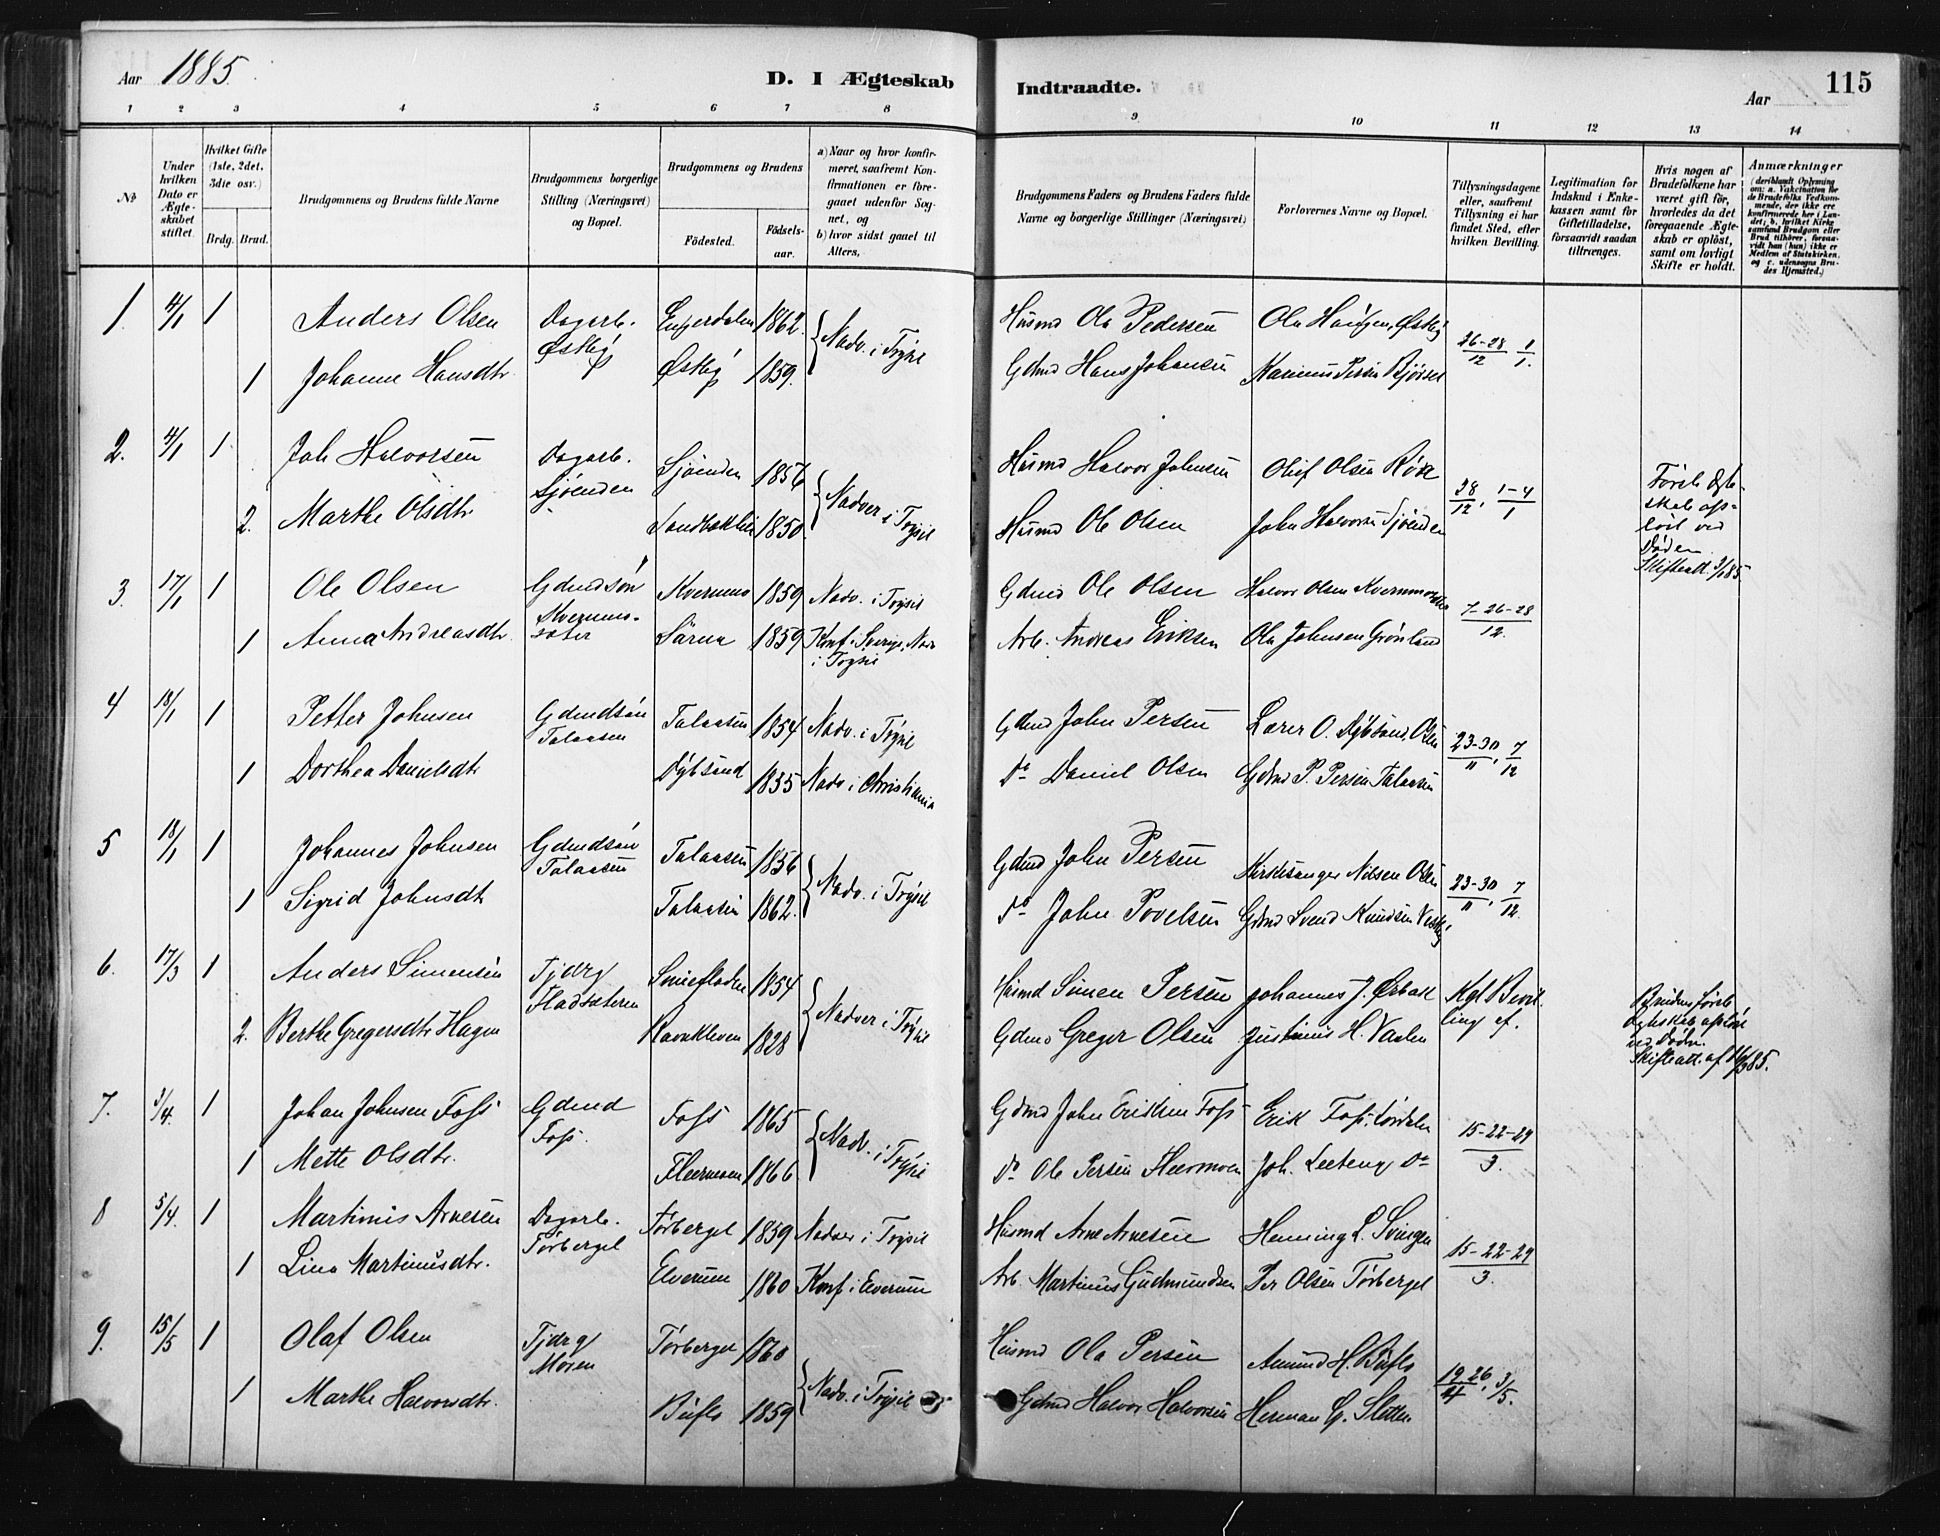 Aar 1885.
D. I Ægteskab Indtraadte.
115
Aar
1 2 3 4 5 6 7 8 9 10 11 12 13 14
№
Under hvilken Dato er Ægteskabet stiftet.
Hvilket Gifte (1ste, 2det, 3die osv.)
Brdg. Brud.
Brudgommens og Brudens fulde Navne
Brudgommens borgerlige Stilling (Næringsvei) og Bopæl.
Brudgommens og Brudens
Födested. Födselsaar.
a) Naar og hvor konfirmeret, saafremt Konfirmationen er foregaaet udenfor Sognet, og
b) hvor sidst gaaet til Alters,
Brudgommens Faders og Brudens Faders fulde Navne og borgerlige Stillinger (Næringsvei)
Forlovernes Navne og Bopæl.
Tillysningsdagene eller, saafremt Tillysning ei har fundet Sted, efter hvilken Bevilling.
Legitimation for Indskud i Enkekassen samt for Giftetilladelse, forsaavidt saadan tiltrænges.
Hvis nogen af Brudefolkene har været gift för, hvorledes da det foregaaende Ægteskab er oplöst, samt om lovligt Skifte er holdt.
Anmærkninger
(deriblandt Oplysning om: a. Vakcination for de Brudefolks Vedkommende, der ikke ere konfirmerede her i Landet; b. hvilket Kirkesamfund Brudgom eller Brud tilhörer, forsaavidt han (hun) ikke er Medlem af Statskirken, og c. udensogns Brudes Hjemsted.)
1. 4/1 1 Anders Olsen Dagarb. Østby Engerdalen 1862. Nadv. i Trysil Husmd Ola Pedersen Ola Haugen, Østby 26-28/12 1/1.
1 Johanne Hansdtr. Østby 1859. Gdmd Hans Johansen Karinus Persen Bjørset
2. 4/1 1 Joh Halvorsen Dagarb. Sjøenden Sjøenden 1856 Nadver i Trysil Husmd Halvor Johnsen Oluf Olsen 28/12, 1-4/1 Første Ægteskab opløst ved Døden. Skifteatt.
2. Marthe Olsdtr. 1850. Husmd Ole Olsen John Halvorsen Sjøenden
3. 17/1 1 Ole Olsen Gdmdsøn Kvernmo 1859 Nadv. i Trysil Gdmd Ole Olsen Halvor Olsen 7-26-28/12.
1 Anna Andreasdtr. Särna 1859 Konf. i Sverige, Nadv i Trysil Arb. Andreas Eriksen Ola Johnsen Grønland
4 18/1 1 Petter Johnsen Gdmdsøn Talaasen Talaasen 1854 Nadv. i Trysil Gdmd John Persen Lærer O. Dybsund, Osen 23-30/11, 7/12
1 Dorthea Danielsdtr Dybsund 1835 Nadv. i Christiania Do Daniel Olsen Gdmd P. Persen Talaasen
5 18/1 1 Johannes Johnsen Gdmdsøn Talaasen Talaasen 1856 Nadv. i Trysil Gdmd John Persen Kirkesanger Nilsen Osen 23-30/11, 7/12.
1 Sigrid Johnsdtr Talaasen 1862. Do John Povelsen Gdmd Svend Knudsen Vestby
6. 17/3 1 Anders Simensen Tjdrg Fladsæteren 1854 Nadver i Trysil Husmd Simen Persen Johannes J. Ørbæk Kgl Bevilling af.
Brudens første Ægteskab opløst ved Døden. Skifteatt. af
2. Berthe Gregersdtr Hagen Ravnkleven 1828 Gdmd Greger Olsen Justinus H.
7. 3/4. 1 Johan Johnsen Foss Gdmd Foss. Foss 1865 Nadv. i Trysil Gdmd John Eriksen Foss Erik Foss. Sørdalen 15-22-29/3.
1 Mette Olsdtr. Fleermoen 1866 Do Ole Persen Fleermoen Joh. Do
8 5/4. 1 Martinus Arnesen Dagarb. Tørberget Tørberget 1859 Nadver i Trysil Husmd Arne Arnesen Henning L. Svingen 15-22-29/3.
1 Lina Martinusdtr. Elverum 1860 Konf. i Elverum Arb. Martinus Gudmundsen Per Olsen Tørberget
9. 15/5 1 Olaf Olsen Tjdrg Moren Tørberget 1860 Nadv. i Trysil Husmd Ola Persen Amund H. Bufls 19.26/4, 3/5.
1 Marthe Halvorsdtr. Bufls 1859 Gdmd Halvor Halvorsen Herman G. Sletten